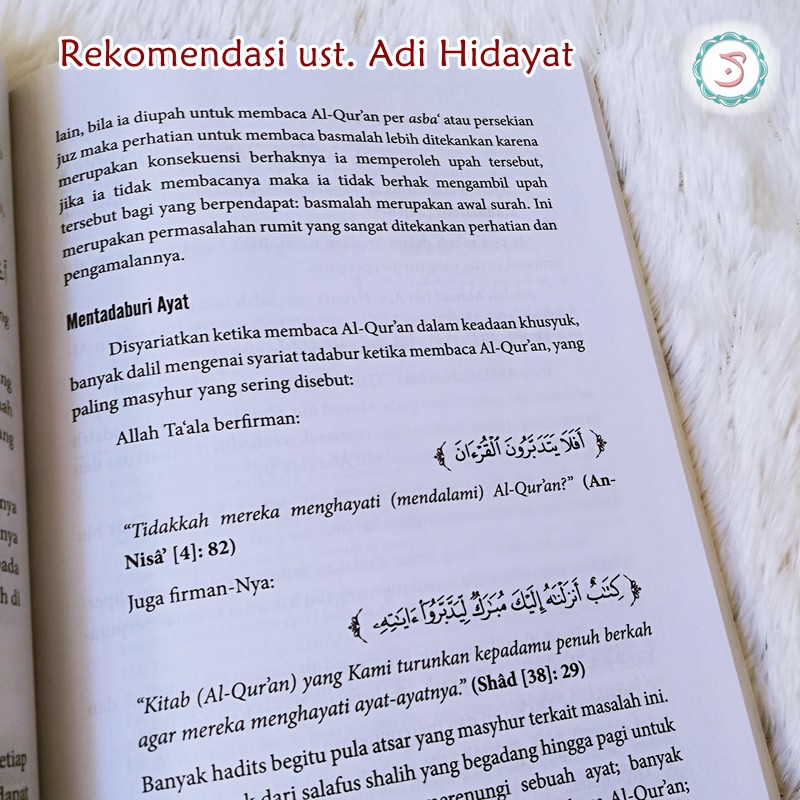 Rekomendasi ust. Adi Hidayat
lain, bila ia diupah untuk membaca Al-Qur'an per asba' atau persekian
juz maka perhatian untuk membaca basmalah lebih ditekankan karena
merupakan konsekuensi berhaknya ia memperoleh upah tersebut,
jika ia tidak membacanya maka ia tidak berhak mengambil upah
tersebut bagi yang berpendapat: basmalah merupakan awal surah. Ini
merupakan permasalahan rumit yang sangat ditekankan perhatian dan
pengamalannya.
Mentadaburi Ayat
Disyariatkan ketika membaca Al-Qur'an dalam keadaan khusyuk,
banyak dalil mengenai syariat tadabur ketika membaca Al-Qur'an, yang
paling masyhur yang sering disebut:
Allah Ta'ala berfirman:
﴿ أَفَلَا يَتَدَبَّرُونَ ٱلْقُرْءَانَ ﴾
"Tidakkah mereka menghayati (mendalami) Al-Qur'an?" (An-
Nisâ' [4]: 82)
Juga firman-Nya:
﴿ كِتَٰبٌ أَنزَلْنَٰهُ إِلَيْكَ مُبَٰرَكٌ لِّيَدَّبَّرُوٓا۟ ءَايَٰتِهِۦ ﴾
"Kitab (Al-Qur'an) yang Kami turunkan kepadamu penuh berkah
agar mereka menghayati ayat-ayatnya." (Shâd [38]: 29)
Banyak hadits begitu pula atsar yang masyhur terkait masalah ini.
dari salafus shalih yang begadang hingga pagi untuk
merenungi sebuah ayat; banyak
Al-Qur'an;